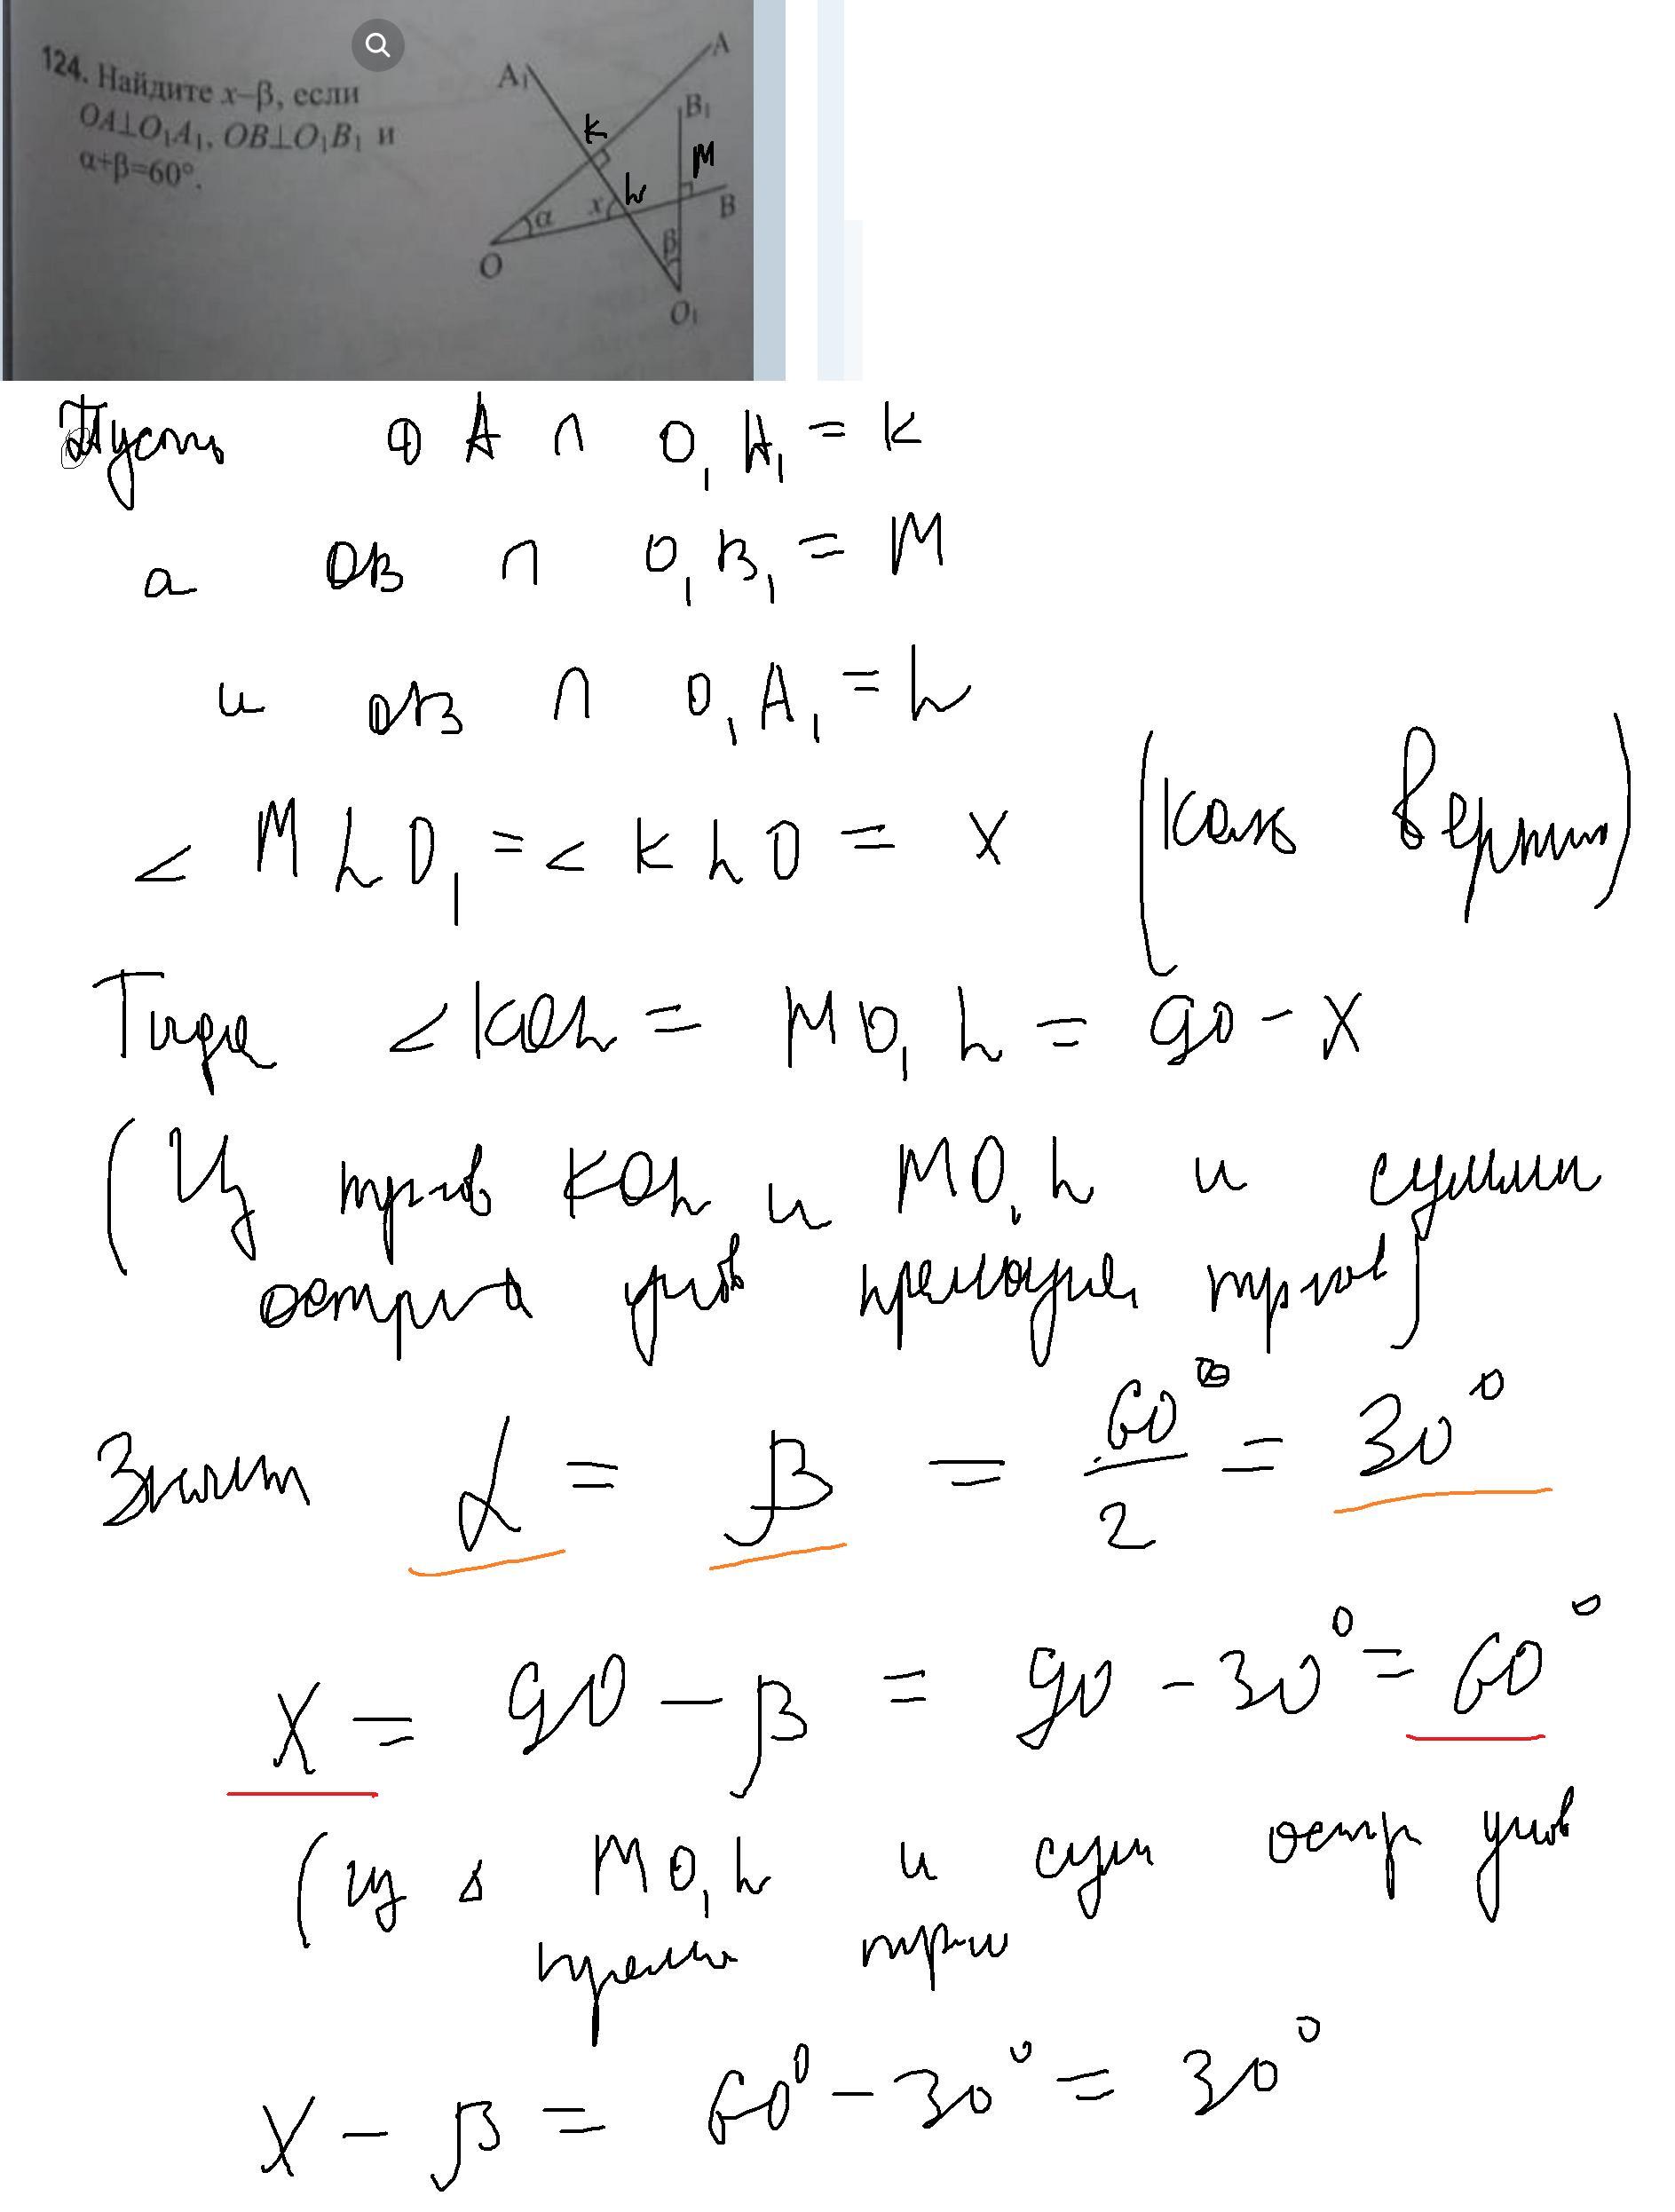 124. Найдите x–β, если
OA⊥O₁A₁, OB⊥O₁B₁ и
α+β=60°.
A₁
A
B₁
K
M
L
x
B
α
β
O
O₁
Пусть OA ∩ O₁A₁ = K
а OB ∩ O₁B₁ = M
и OB ∩ O₁A₁ = L
< MLO₁ = < KLO = x (как вертик)
Тогда < KOL = MO₁L = 90 - x
(Из тр-ков KOL и MO₁L и суммы
острых углов прямоуг тр-ков)
Значит α = β = 60°/2 = 30°
x = 90 - β = 90 - 30° = 60°
(из Δ MO₁L и сум остр углов
прямоуг
x - β = 60° - 30° = 30°